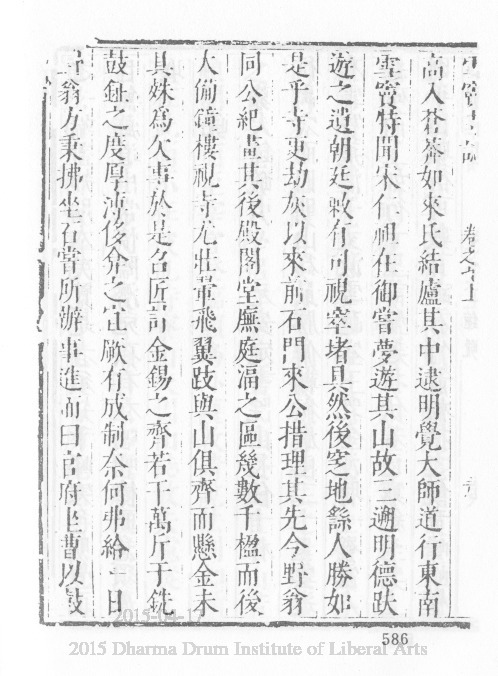 雪竇寺誌 卷之六上
高入蒼莽如來氏結廬其中逮明覺大師道行東南
雪竇特聞宋仁祖在御嘗夢遊其山故三遡明德趺
遊之道朝廷敕有司視窣堵具然後窆地繇人勝如
是乎寺更劫灰以來前石門來公措理其先今野翁
同公紀畫其後殿閣堂廡庭湢之區幾數千楹而後
大備鐘樓視寺尤壯翬飛翼跂與山俱齊而懸金未
具姝為欠事於是召匠計金錫之齊若干萬斤于銑
鼓鉦之度厚薄侈弇之宜厥有成制奈何弗給一日
野翁方秉拂坐石嘗所辦事進而曰官府坐曹以鼓
586
2015-04-17
2015 Dharma Drum Institute of Liberal Arts